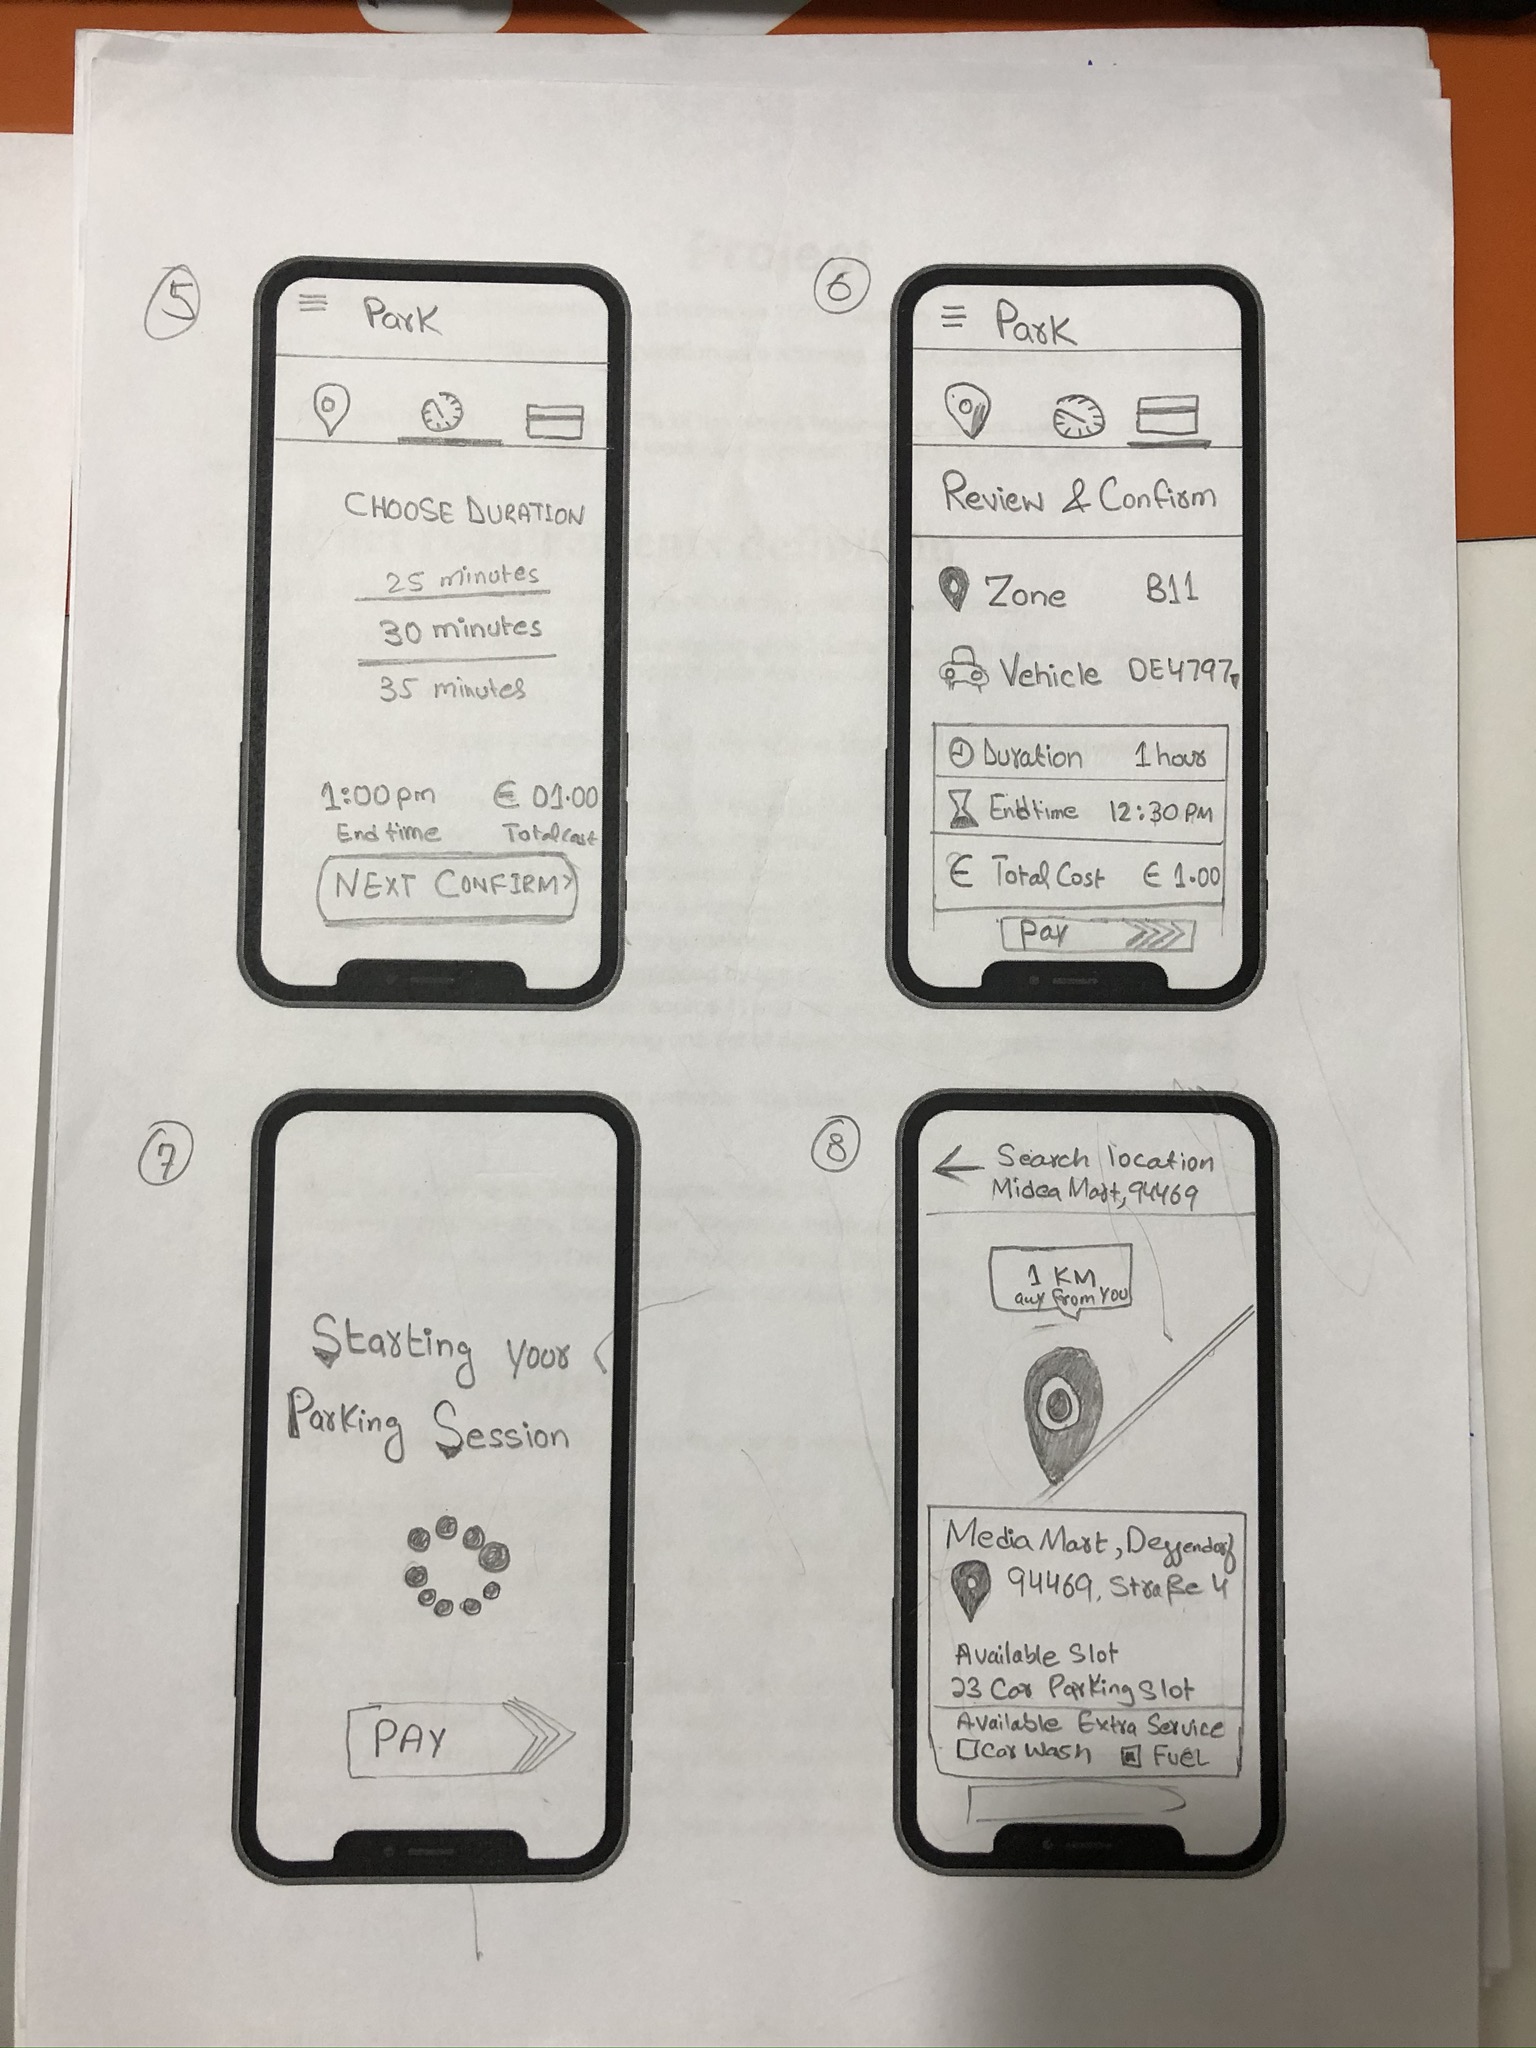 Project
5
Park
CHOOSE DURATION
25 minutes
30 minutes
35 minutes
1:00pm € 01.00
End time Total cost
NEXT CONFIRM>
6
Park
Review & Confirm
Zone B11
Vehicle DE4797
Duration 1 hour
End time 12:30 PM
€ Total Cost € 1.00
Pay
7
Starting your
Parking Session
PAY
8
← Search location
Midea Mart, 94469
1 KM
auy from you
Media Mart, Deggendorf
94469, Straße 4
Available Slot
23 Car Parking Slot
Available Extra Service
Car Wash FUEL